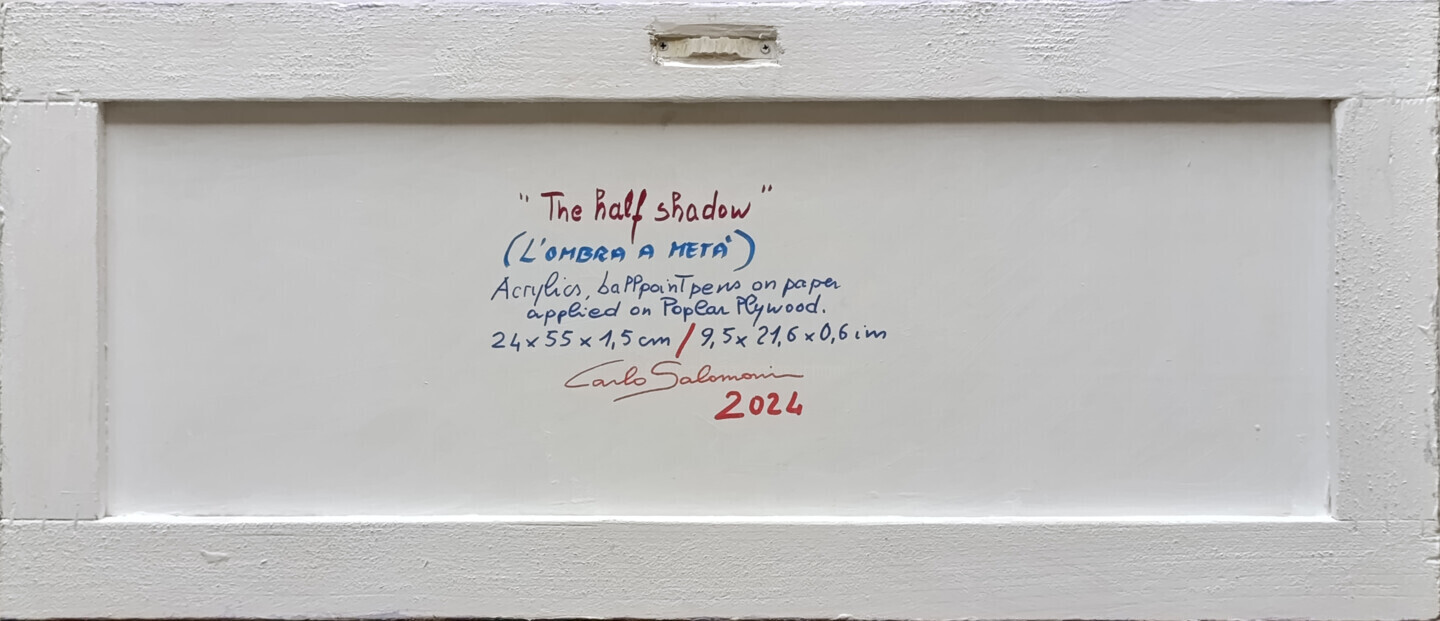 "The half shadow"
(L'OMBRA A METÀ)
Acrylics, ballpoint pens on paper
applied on Poplar Plywood.
24x55x1,5 cm / 9,5x21,6x0,6 in
Carlo Salomoni
2024